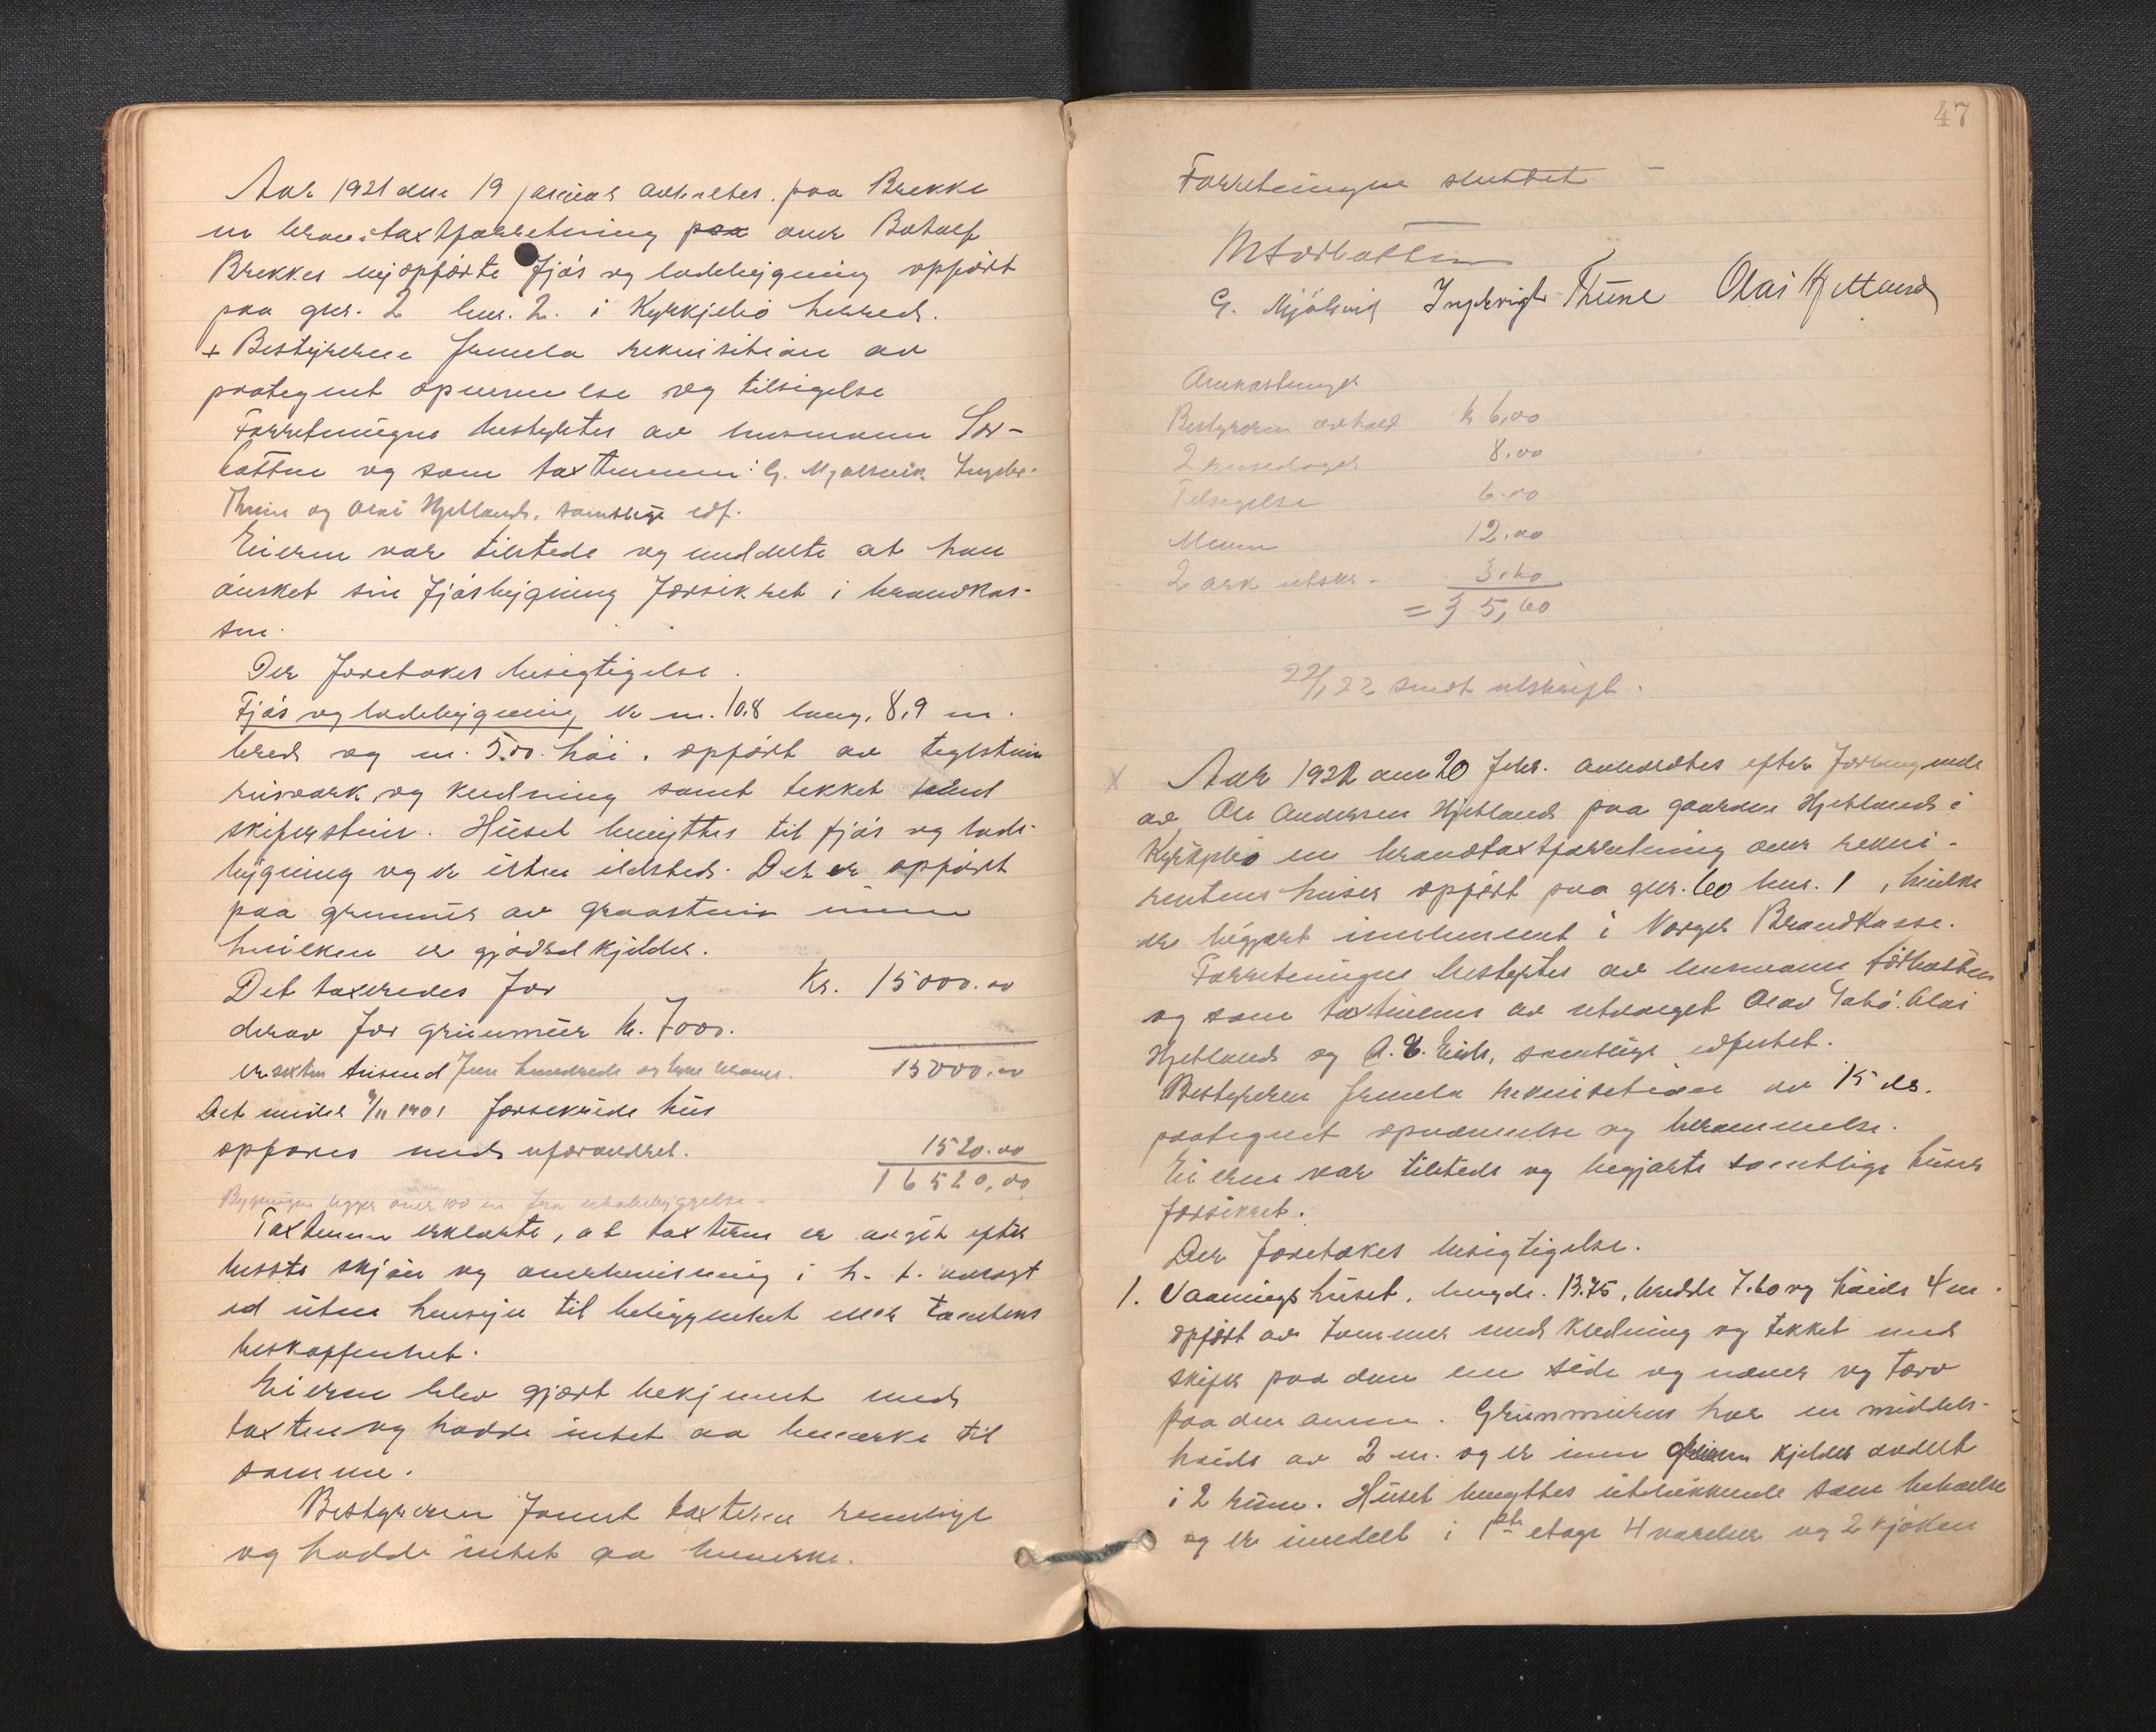 Aar 1921 den 19 januar avholtes paa Brekke
en brandtaxtforretning paa over Botolf
Brekkes nyopførte fjøs og ladebygning opført
paa gnr. 2 bnr. 2. i Kyrkjebø herred.
+ Bestyreren fremla rekvisition av
paategnet opnevnelse og tilsigelse
Forretningen bestyrtes av lensmann Sør-
botten og som taxtmenn: G. Mjølsvik. Ingebr.
Thune og Olai Hjetland, samtlige edf.
Eieren var tilstede og meddelte at han
ønsket sin fjøsbygning forsikret i brandkas-
sen.
Der foretokes besigtigelse.
Fjøs og ladebygning, er m. 10.8 lang, 8,9 m.
bred og m. 5.00. høi, opført av teglstein
reisverk, og kledning samt tekket med
skiferstein. Huset benyttes til fjøs og lade-
bygning og er uten ildsted. Det er opført
paa grunmur av graastein innen
hvilken er gjødselkjelder.
Det taxeredes for Kr. 15000.00
derav for grunmur kr. 7000.
15000.00
er seksten tusend fem hundrede og tyve kroner.
Det under 9/11 1901 forsekrede hus
opføres med uforandret. 1520.00
16520,00
Bygningen ligger over 100 m fra nabobebyggelse.
Taxtmenn erklærte, at taxten er avgit efter
beste skjøn og overbevisning i h. t. avlagt
ed uten hensyn til beliggenhet eller tomtens
beskaffenhet.
Eieren blev gjort bekjennt med
taxten og hadde intet aa bemerke til
samme.
Bestyreren fannt taxten rimelige
og hadde intet aa bemerke.
47
Forretningen sluttet
M Sørbotten
G. Mjölsvik Ingebrigt Thune Olai Hjetland
Omkostninger
Bestyreren avhold k 6,00
2 reisedager 8.00
Tilsigelse 6.00
Menn 12.00
2 ark utskr. 3.60
= 35,60
22/1 22 sendt utskrift.
X Aar 1922 den 20 febr. avholdtes efter forlangende
av Ole Andersen Hjetland paa gaarden Hjetland i
Kyrkjebø en brandtaxtforretning over rekvi-
rentens huser opført paa gnr. 60 bnr. 1, hvilke
er begjært innlemmet i Norges Brandkasse.
Forretningen bestyrtes av lensmann Sørbotten
og som taxtmenn av utvalget Olav Vabø. Olai
Hjetland og A. E. Eide, samtlige edfestet.
Bestyreren fremla rekvisition av 15 ds.
paategnet opnævnelse og berammelse.
Eieren var tilstede og begjærte samtlige huser
forsikret.
Der foretokes besigtigelse.
1. Vaaningshuset, lengde. 13.75, bredde 7.60 og høide 4 m.
opført av tømmer med kledning og tekket med
skifer paa den ene side og næver og torv
paa den annen. Grunmuren har en middels-
høide av 2 m. og er innen kjelder avdelt
i 2 rum. Huset benyttes utelukkende som beboelse
og er inndelt i 1ste etage 4 værelser og 2 kjøken